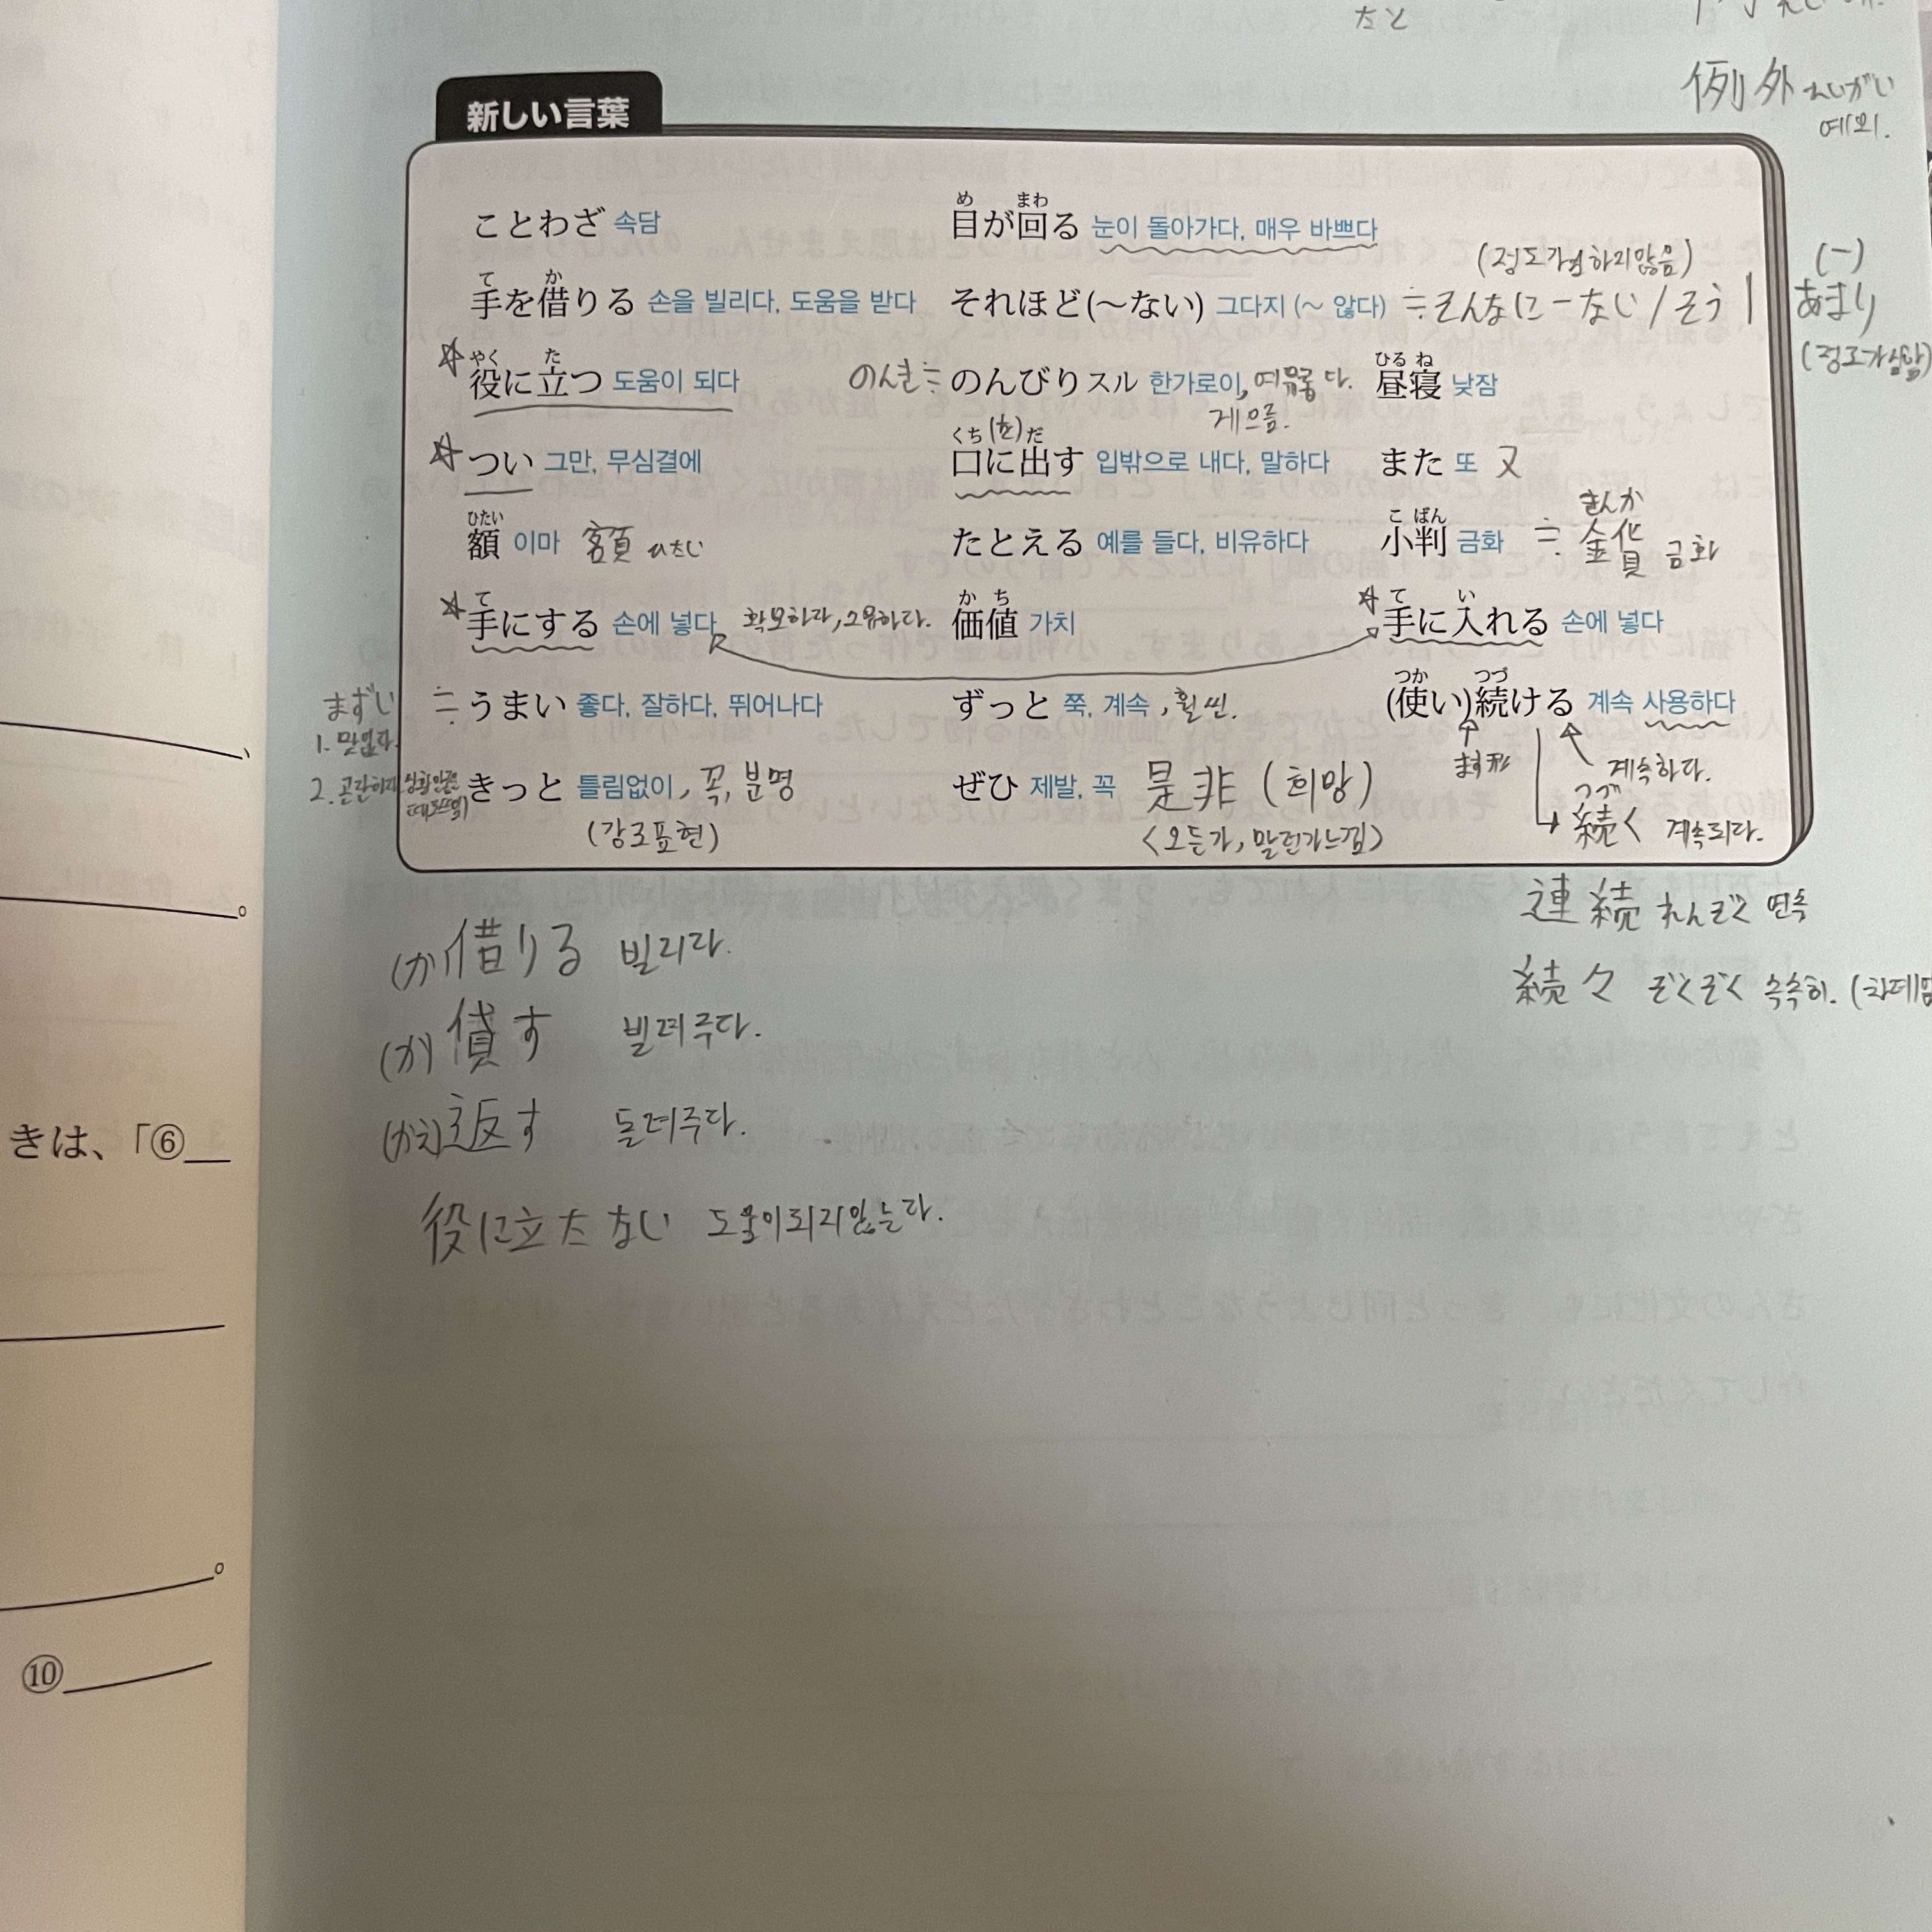 たと
例外 れいがい
예외.
新しい言葉
ことわざ 속담
目が回る 눈이 돌아가다, 매우 바쁘다
め まわ
(정도가 심하지않음)
(ー)
手を借りる 손을 빌리다, 도움을 받다
て か
それほど(～ない) 그다지 (～ 않다) ≒そんなにーない / そう
あまり
☆役に立つ 도움이 되다
やく た
のんき≒のんびりスル 한가로이, 다.
게으름.
昼寝 낮잠
ひる ね
☆つい 그만, 무심결에
口に出す 입밖으로 내다, 말하다
くち (を) だ
また 또 又
額 이마 額 ひたい
ひたい
たとえる 예를 들다, 비유하다
小判 금화 ≒ 金貨 금화
こ ばん きんか
☆手にする 손에 넣다 확보하다, 소유하다.
て
価値 가치
か ち
☆手に入れる 손에 넣다
て い
まずい ≒ うまい 좋다, 잘하다, 뛰어나다
1. 맛없다.
ずっと 쭉, 계속, 훨씬.
(使い)続ける 계속 사용하다
つか つづ
ます形
계속하다.
2. 곤란하다
きっと 틀림없이, 꼭, 분명
(강조표현)
ぜひ 제발, 꼭 是非 (희망)
<오든가, 말던가느낌>
つづ
続く 계속되다.
連続 れんぞく 연속
続々 ぞくぞく 속속히.
(か)借りる 빌리다.
(か)貸す 빌려주다.
(かえ)返す 돌려주다.
役に立たない 도움이되지않는다.
きは、「⑥
⑩